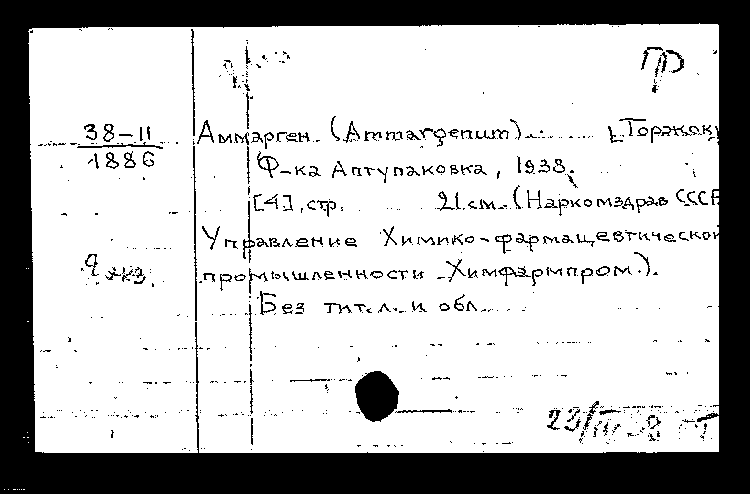 ПР
38-11
1886
Аммарген. (Ammargenum). [Торжок]
Ф-ка Аптупаковка, 1938.
[4] стр. 21 см. (Наркомздрав СССР
Управление Химико-фармацевтической
промышленности Химфармпром.).
экз.
Без тит. л. и обл.
23/IV-8